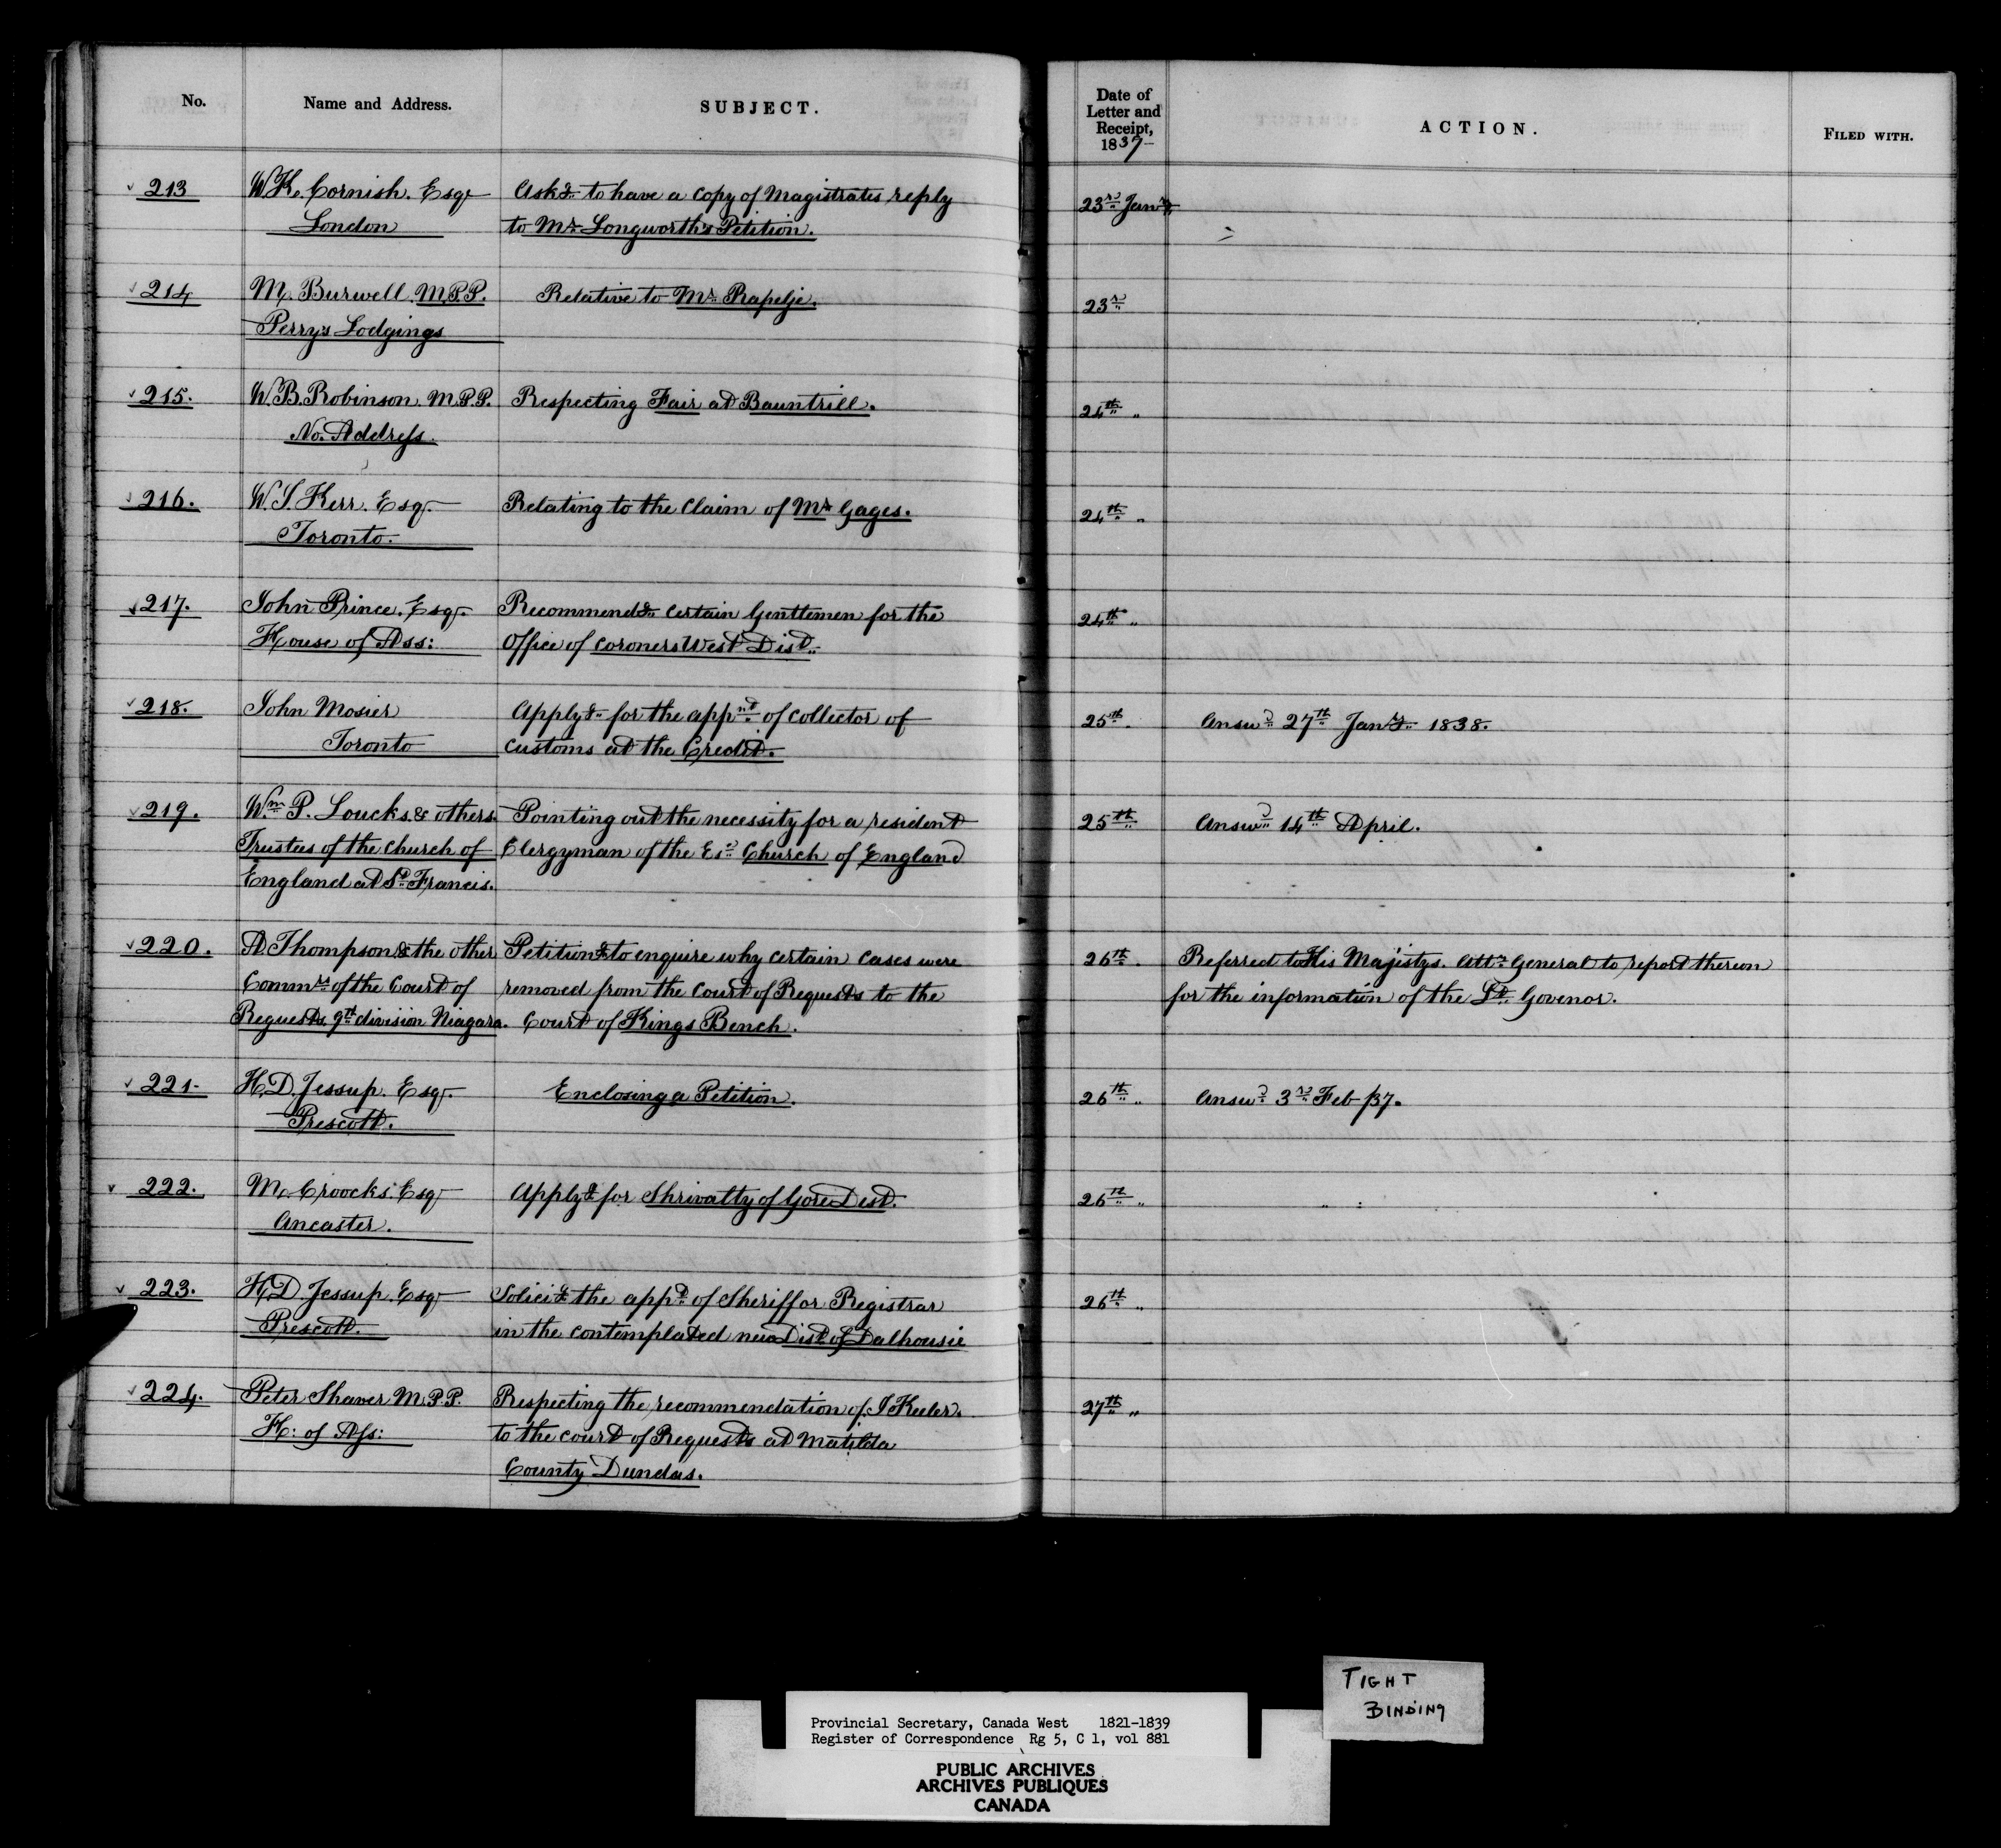 No.
Name and Address.
SUBJECT.
Date of
Letter and
Receipt,
1837
ACTION.
FILED WITH.
213
W.K. Cornish. Esqr
London
Askg to have a copy of Magistrates reply
to Mr Longworth's Petition.
23rd Jany
214
M. Burwell M.P.P.
Perry's Lodgings
Relative to Mr Rapelje.
23rd
215.
W.B. Robinson. M.P.P.
No. Address.
Respecting Fair at Bauntrill.
24th "
216.
W.S. Kerr. Esqr.
Toronto.
Relating to the Claim of Mr Gages.
24th "
217.
John Prince. Esqr.
House of Ass:
Recommendg certain Gentlemen for the
Office of Coroners West Dist.
24th "
218.
John Mosier
Toronto
Applyg for the appnt of collector of
customs at the Credit.
25th
Answd 27th Jany 1838.
219.
Wm P. Loucks. & others.
Trustees of the Church of
England at St Francis.
Pointing out the necessity for a resident
Clergyman of the Esd Church of England
25th
Answd 14th April.
220.
A Thompson & the other
Commrs of the Court of
Requests 9th division Niagara.
Petitiong to enquire why certain cases were
removed from the Court of Requests to the
Court of Kings Bench.
26th
Referred to His Majistys. Atty General to report thereon
for the information of the Lt. Govenor.
221.
H.D. Jessup. Esqr.
Prescott.
Enclosing a Petition.
26th "
Answd 3rd Feb /37.
222.
M. Croocks. Esqr
Ancaster.
Applyg for Shrivalty of Gore Dist.
26th "
223.
H.D. Jessup. Esqr
Prescott.
Solicitg the appt of Sheriff or Registrar
in the contemplated new Dist of Dalhousie
26th "
224.
Peter Shaver M.P.P.
H: of Ass:
Respecting the recommendation of J Keeler.
to the court of Requests at Matilda
County Dundas.
27th "
TIGHT
BINDING
Provincial Secretary, Canada West 1821-1839
Register of Correspondence Rg 5, C 1, vol 881
PUBLIC ARCHIVES
ARCHIVES PUBLIQUES
CANADA